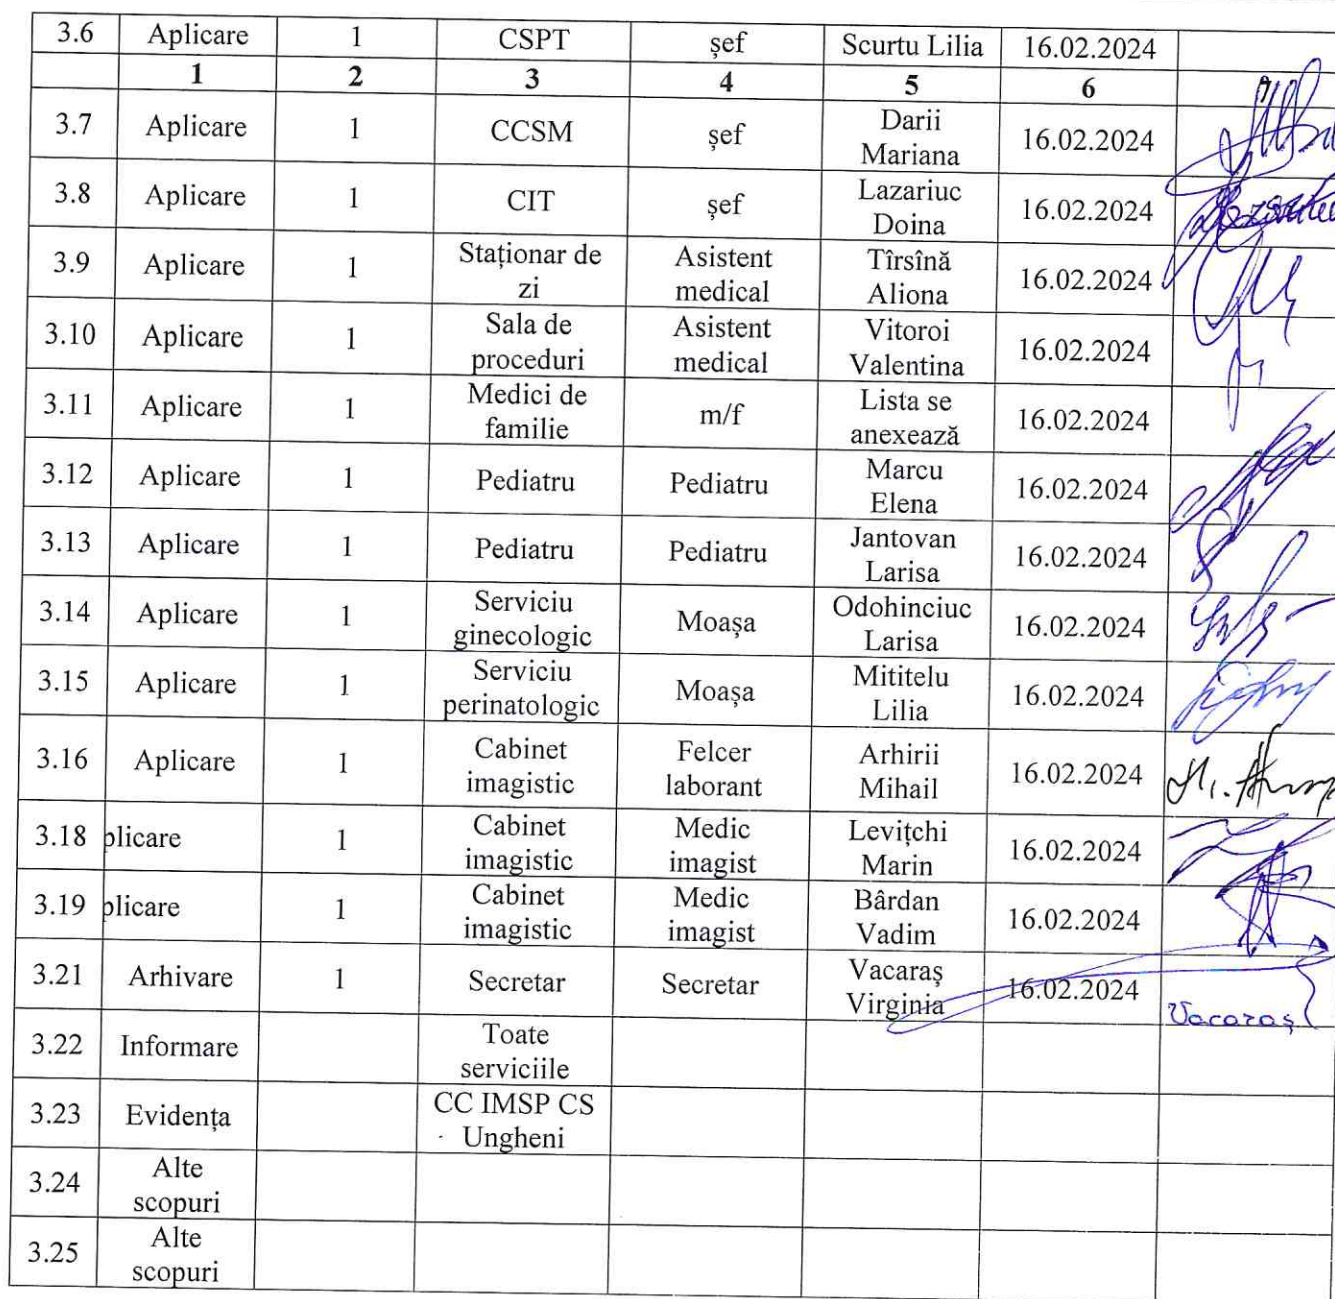 3.6 Aplicare 1 CSPT șef Scurtu Lilia 16.02.2024
1 2 3 4 5 6 7
3.7 Aplicare 1 CCSM șef Darii Mariana 16.02.2024
3.8 Aplicare 1 CIT șef Lazariuc Doina 16.02.2024
3.9 Aplicare 1 Staționar de zi Asistent medical Tîrsînă Aliona 16.02.2024
3.10 Aplicare 1 Sala de proceduri Asistent medical Vitoroi Valentina 16.02.2024
3.11 Aplicare 1 Medici de familie m/f Lista se anexează 16.02.2024
3.12 Aplicare 1 Pediatru Pediatru Marcu Elena 16.02.2024
3.13 Aplicare 1 Pediatru Pediatru Jantovan Larisa 16.02.2024
3.14 Aplicare 1 Serviciu ginecologic Moașa Odohinciuc Larisa 16.02.2024
3.15 Aplicare 1 Serviciu perinatologic Moașa Mititelu Lilia 16.02.2024
3.16 Aplicare 1 Cabinet imagistic Felcer laborant Arhirii Mihail 16.02.2024
3.18 plicare 1 Cabinet imagistic Medic imagist Levițchi Marin 16.02.2024
3.19 plicare 1 Cabinet imagistic Medic imagist Bârdan Vadim 16.02.2024
3.21 Arhivare 1 Secretar Secretar Vacaraș Virginia 16.02.2024 Vacaraș
3.22 Informare Toate serviciile
3.23 Evidența CC IMSP CS Ungheni
3.24 Alte scopuri
3.25 Alte scopuri